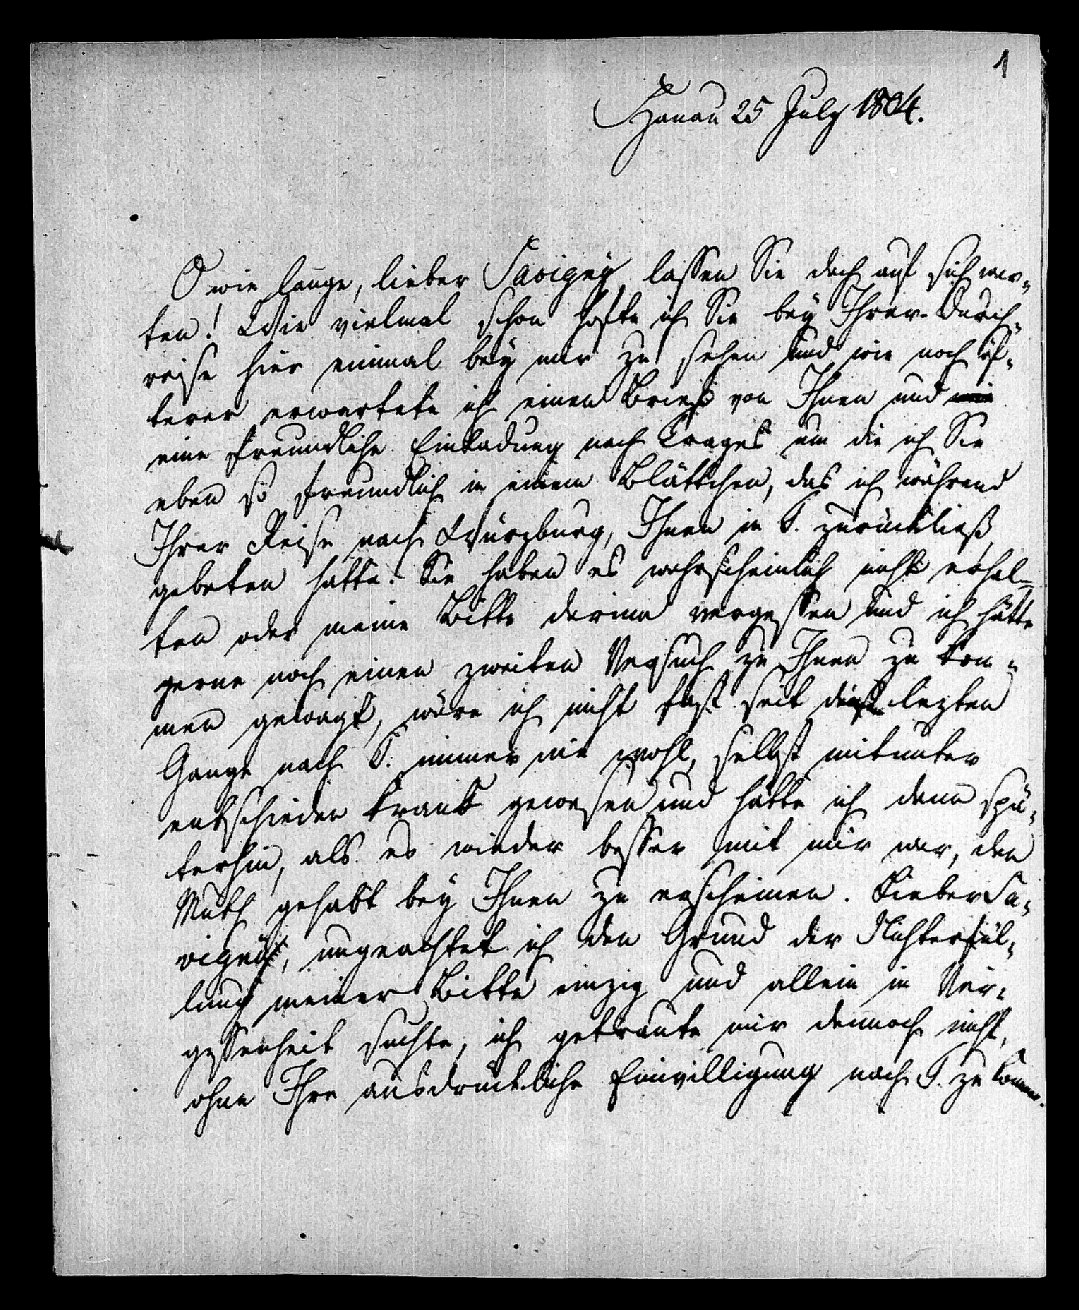 1
Hanau 25 July 1804.
O wie lange, lieber Savigny, lassen Sie doch auf sich war-
ten! Wie vielmal schon hofte ich Sie bey Ihrer Durch-
reise hier einmal bey mir zu sehen und wie noch öf-
terer erwartete ich einen Brief von Ihnen und
eine freundliche Einladung nach Trages um die ich Sie
eben so freundlich in einem Blättchen, das ich während
Ihrer Reise nach Würzburg, Ihnen in T. zurückließ
gebeten hatte. Sie haben es wahrscheinlich nicht erhal-
ten oder meine Bitte darinn vergessen und ich hätte
gerne noch einen zweiten Versuch zu Ihnen zu kom-
men gewagt, wäre ich nicht fast seit dem lezten
Gange nach T. immer nie wohl, selbst mitunter
entschieden krank gewesen und hätte ich dann spä-
terhin, als es wieder besser mit mir war, den
Muth gehabt bey Ihnen zu erscheinen. Lieber Sa-
vigny, ungeachtet ich den Grund der Nichterfül-
lung meiner Bitte einzig und allein in Ver-
gessenheit suchte, ich getraute mir dennoch nicht,
ohne Ihre ausdrückliche Einwilligung nach T. zu komen.